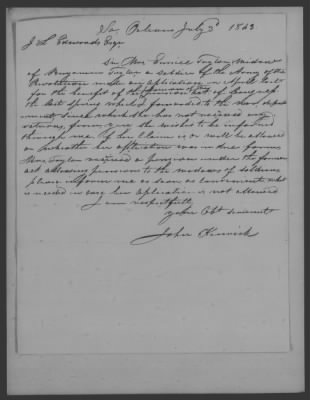 So. Orleans July 3d 1843
J L Edwards Esqr
Sir Mrs Eunice Taylor Widow
of Benjamin Taylor a soldier of the Army of the
Revolution made an application in April last
for the benefit of the pension Act of Congress
the last Spring which I forwarded to the War depart
ment, since which she has not received any
returns from you she wishes to be informed
through me if her Claim is or will be allowed
or whether her application was in due form
Mrs Taylor received a pension under the former
act allowing pensions to the widows of soldiers
please inform me as soon as convenient what
is needed in case her application is not allowed
I am respectfully
your Obt servant
John Kenrick